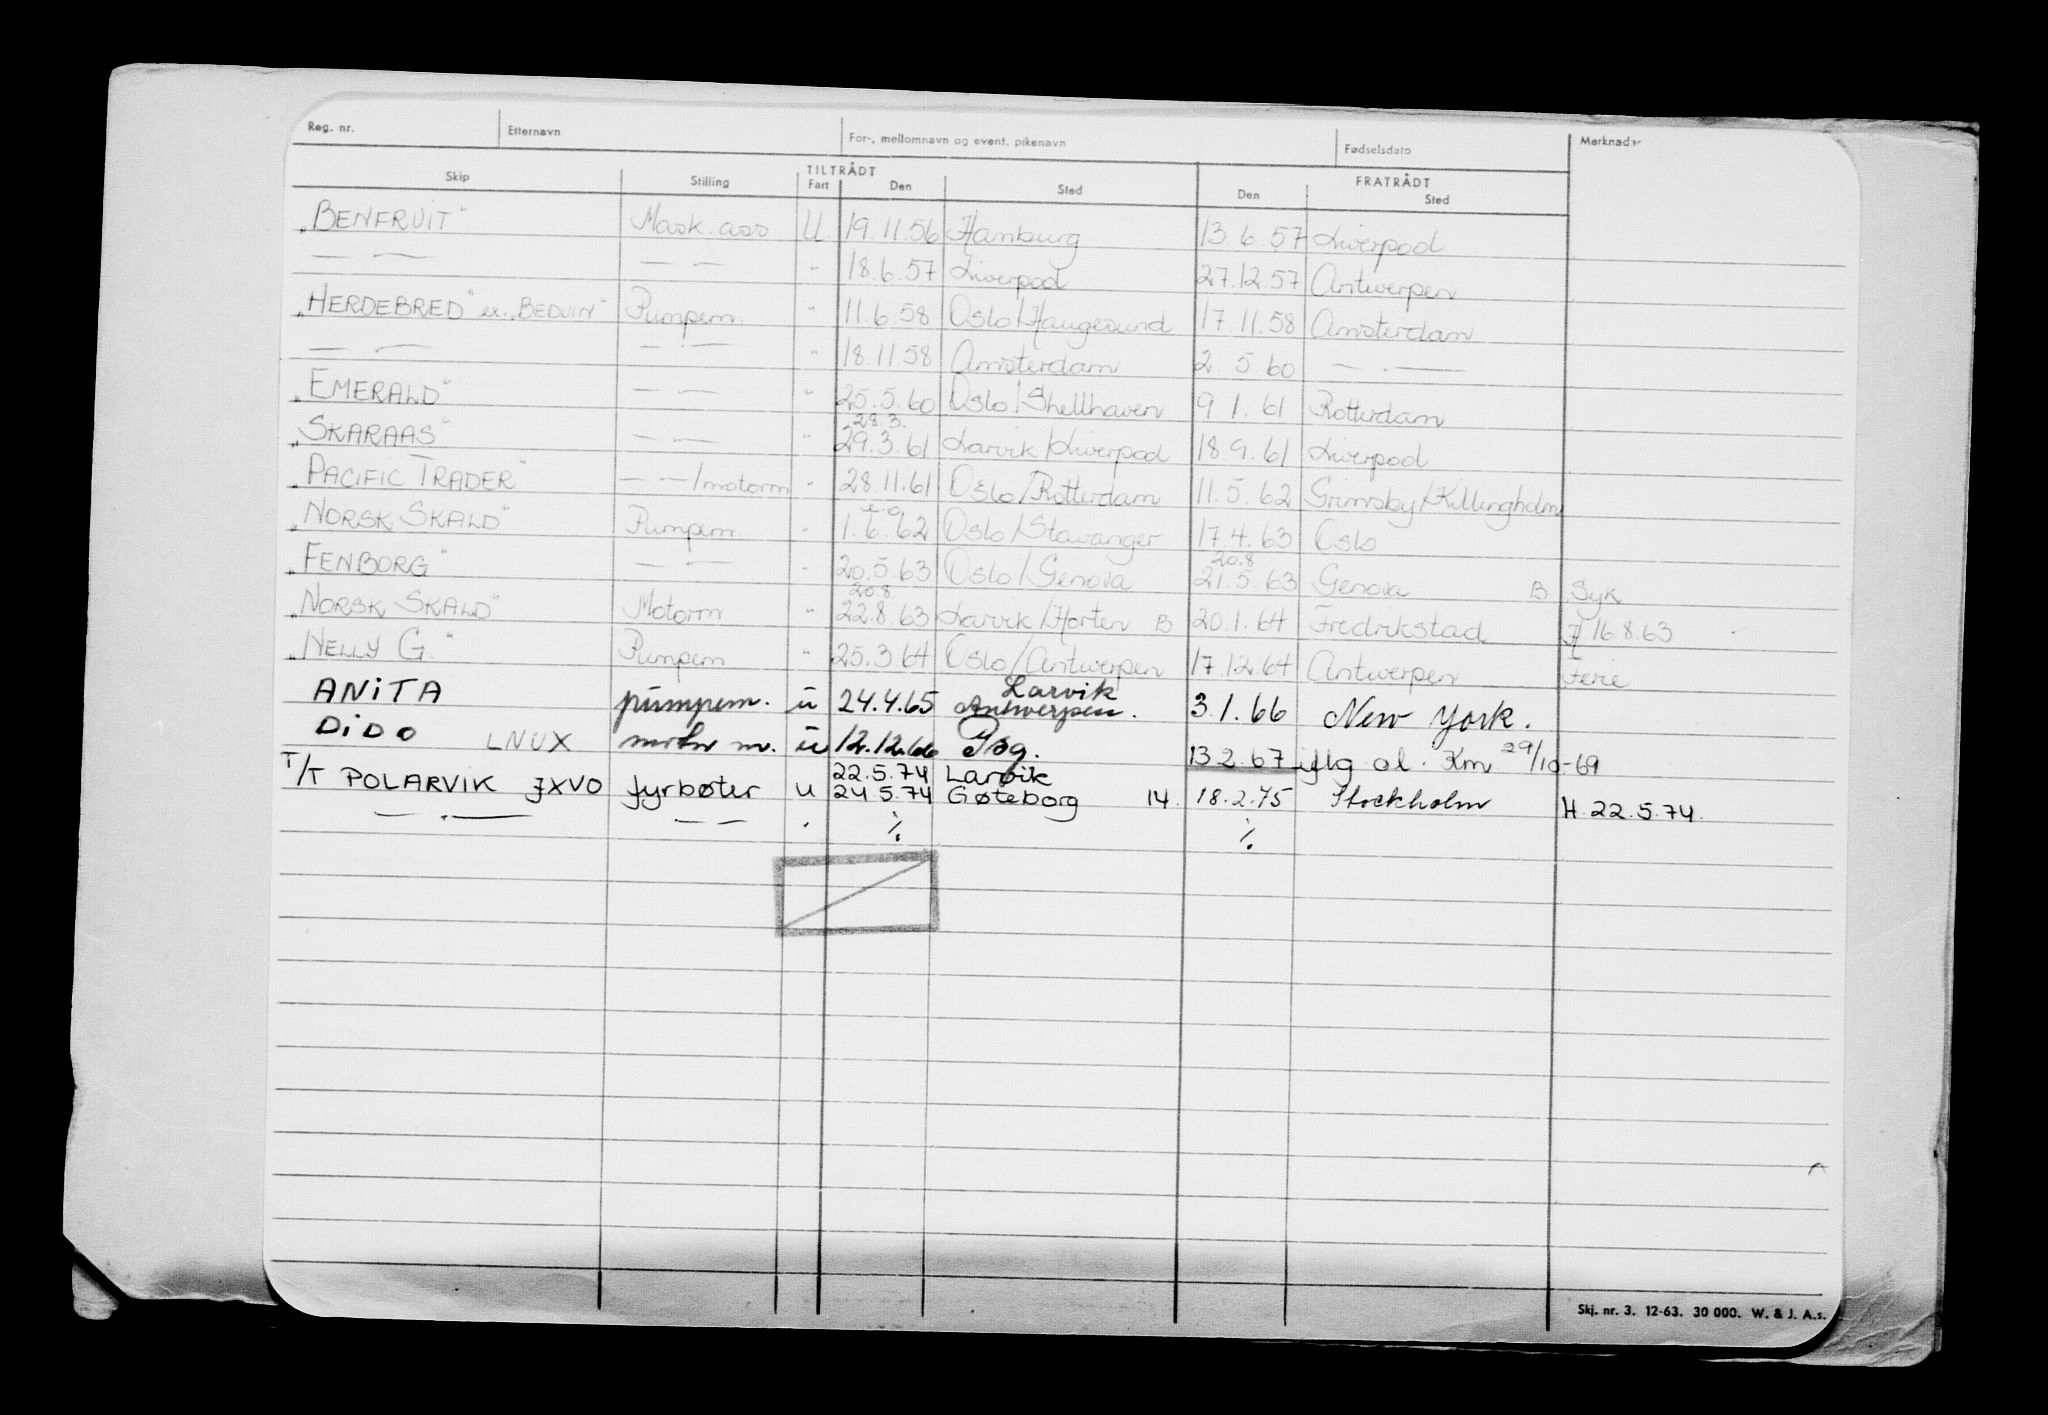 Reg. nr. Etternavn For-, mellomnavn og event. pikenavn Fødselsdato Merknader
TILTRÅDT FRATRÅDT
Skip Stilling Fart Den Sted Den Sted
„BENFRUIT" Mask. ass U 19.11.56 Hamburg 13.6.57 Liverpool
— — — — " 18.6.57 Liverpool 27.12.57 Antwerpen
„HERDEBRED" ex. „BEDUIN" Pumpem. " 11.6.58 Oslo/Haugesund 17.11.58 Amsterdam
— — — — " 18.11.58 Amsterdam 2.5.60 — . —
„EMERALD" — — " 25.5.60 Oslo/Shellhaven 9.1.61 Rotterdam
28.3.
„SKARAAS" — — " 29.3.61 Larvik/Liverpool 18.9.61 Liverpool
„PACIFIC TRADER" — — /motorm " 28.11.61 Oslo/Rotterdam 11.5.62 Grimsby/Killingholm
„NORSK SKALD" Pumpem. " 1.6.62 Oslo/Stavanger 17.4.63 Oslo
20.8
„FENBORG" — — " 20.5.63 Oslo/Genova 21.5.63 Genova B Syk
20.8.
„NORSK SKALD" Motorm " 22.8.63 Larvik/Horten B 20.1.64 Fredrikstad H. 16.8.63
„NELLY G." Pumpem " 25.3.64 Oslo/Antwerpen 17.12.64 Antwerpen Ferie
Larvik
ANiTA pumpem. u 24.4.65 Antwerpen. 3.1.66 New York.
DiDO LNUX motor m. u 12.12.66 Psg. 13.2.67 iflg al. Km 29/10-69
22.5.74 Larvik
T/T POLARVIK JXVO fyrbøter u 24.5.74 Gøteborg 14. 18.2.75 Stockholm H. 22.5.74.
— . — — — . ⁒ ⁒
Skj. nr. 3. 12-63. 30 000. W. & J. A.s.